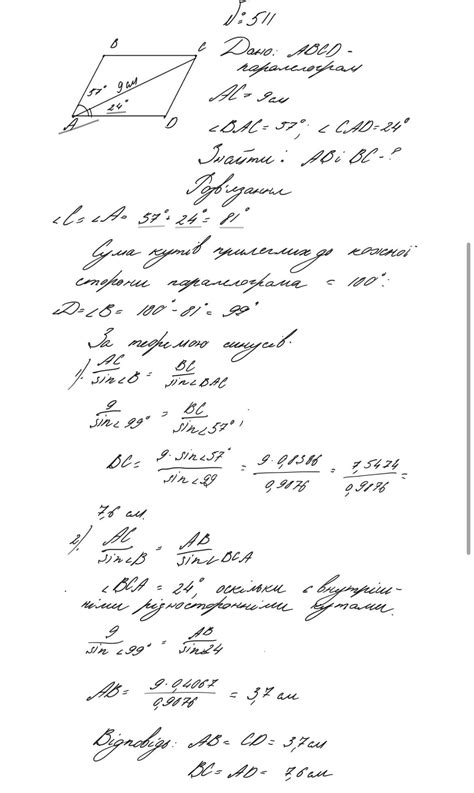 № 511
B C
57° 9 см
24°
A D
Дано: ABCD -
паралелограм
AC = 9 см
∠BAC = 57°; ∠CAD = 24°
Знайти: AB і BC - ?
Розв'язання
∠C = ∠A = 57° + 24° = 81°
Сума кутів прилеглих до кожної
сторони паралелограма = 100°.
∠D = ∠B = 100° - 81° = 99°
За теоремою синусів.
1). AC/sin∠B = BC/sin∠BAC
9/sin∠99° = BC/sin∠57°;
BC = 9·sin∠57°/sin∠99 = 9·0,8386/0,9876 = 7,5474/0,9876 =
7,6 см.
2). AC/sin∠B = AB/sin∠BCA
∠BCA = 24°, оскільки є внутріш-
німи різносторонніми кутами.
9/sin∠99° = AB/sin∠24
AB = 9·0,4067/0,9876 = 3,7 см
Відповідь: AB = CD = 3,7 см
BC = AD = 7,6 см